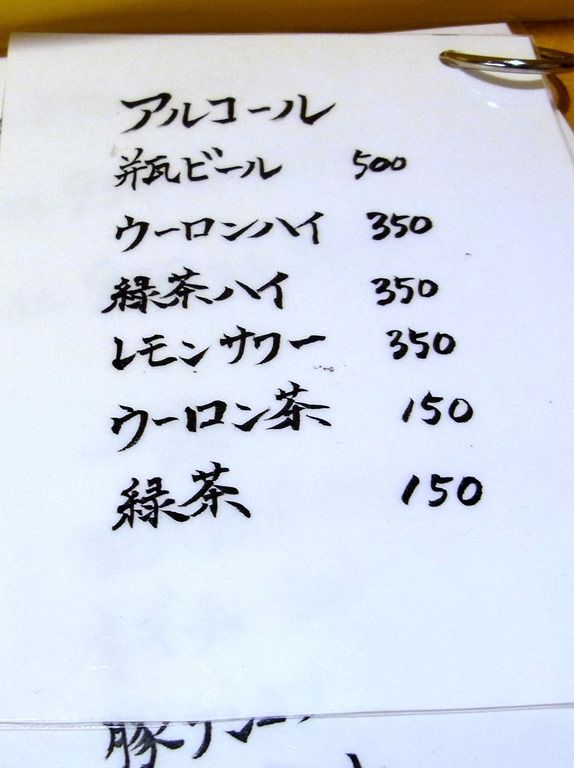 アルコール
瓶ビール 500
ウーロンハイ 350
緑茶ハイ 350
レモンサワー 350
ウーロン茶 150
緑茶 150